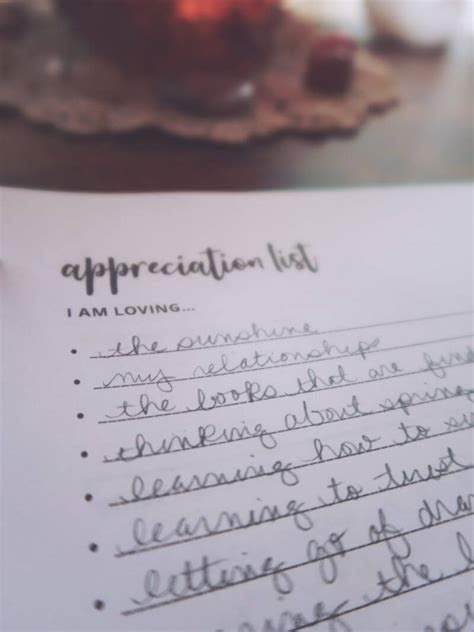 appreciation list
I AM LOVING...
the sunshine
my relationships
the books that are
thinking about spring
learning how to
learning to trust
letting go of
the